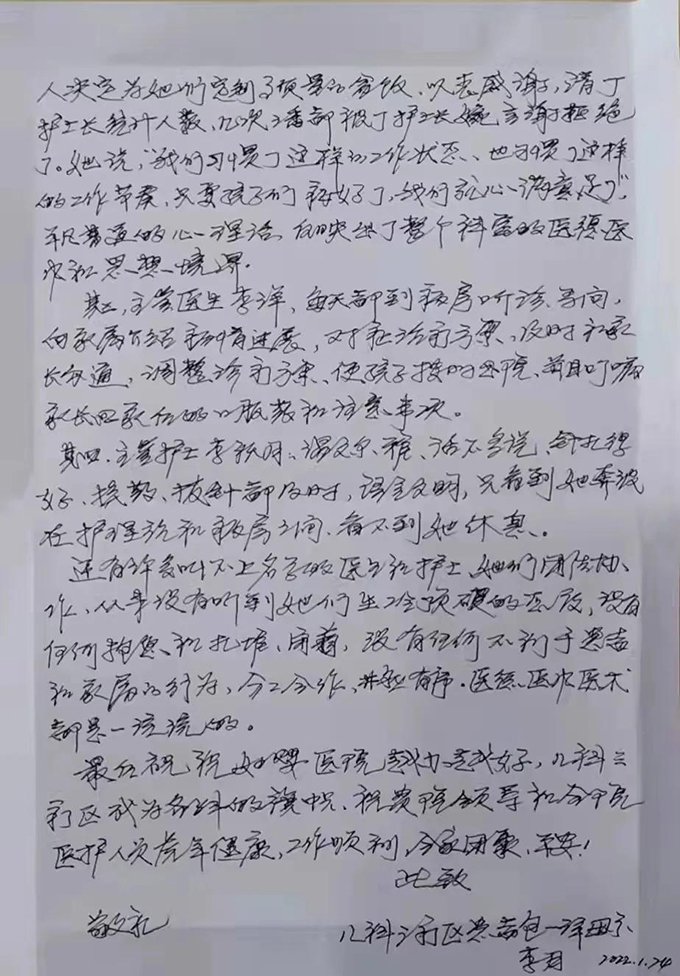 人决定为她们定制了预量的套饭，以表感谢，请了
护士长统计人数，几次三番都被了护士长婉言谢拒绝
了。她说，"我们习惯了这样的工作状态、也习惯了这样
的工作节奏，只要孩子们病好了，我们就心满意足了"，
平凡普通的心理话，反映出了整个科室的医德医
术和思想境界.
其三，主管医生李洋，每天都到病房听诊、寻问，
向家属介绍病情进展，对症治疗方案、及时和家
长沟通，调整诊疗方案、使孩子按时出院、并且叮嘱
家长回家后的口服药和注意事项。
其四、主管护士李秋月、温文尔雅、话不多说、针扎得
好、换药、拔针都及时，语言文明，只看到她奔波
在护理站和病房之间，看不到她休息。
还有许多叫不上名字的医生和护士，她们团结协
作、从来没有听到她们生冷硬的态度，没有
任何抱怨、和扎堆、闲聊，没有任何不利于患者
和家属的行为，分工合作、井然有序.医德医术
都是一流的。
最后祝，说妇婴医院越办越好，儿科三
疗区成为各科的旗帜、祝贵院领导和全体
医护人员虎年健康，工作顺利，合家团聚、平安！
此致
敬礼
儿科三疗区患者包一泽
李 2022.1.24